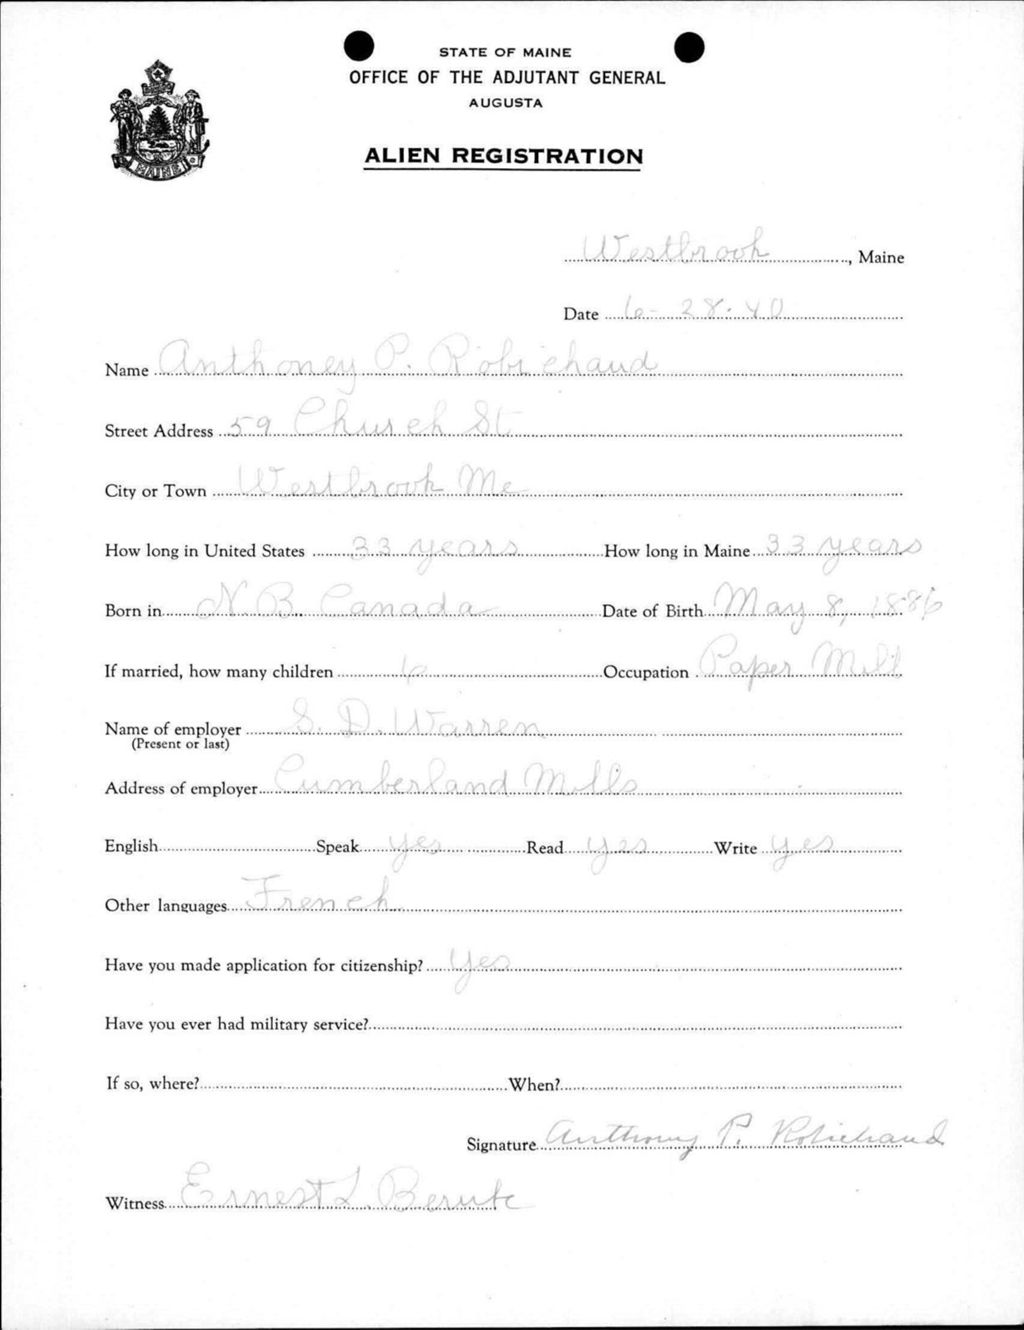 STATE OF MAINE
OFFICE OF THE ADJUTANT GENERAL
AUGUSTA
ALIEN REGISTRATION
MAINE
Westbrook, Maine
Date 6-28-40
Name Anthoney P. Robichaud
Street Address 59 Church St
City or Town Westbrook Me
How long in United States 33 years How long in Maine 33 years
Born in N.B. Canada Date of Birth May 8, 1886
If married, how many children 6 Occupation Paper Mill
Name of employer S. D. Warren
(Present or last)
Address of employer Cumberland Mills
English Speak yes Read yes Write yes
Other languages French
Have you made application for citizenship? Yes
Have you ever had military service?
If so, where? When?
Signature Anthony P. Robichaud
Witness Ernest L.